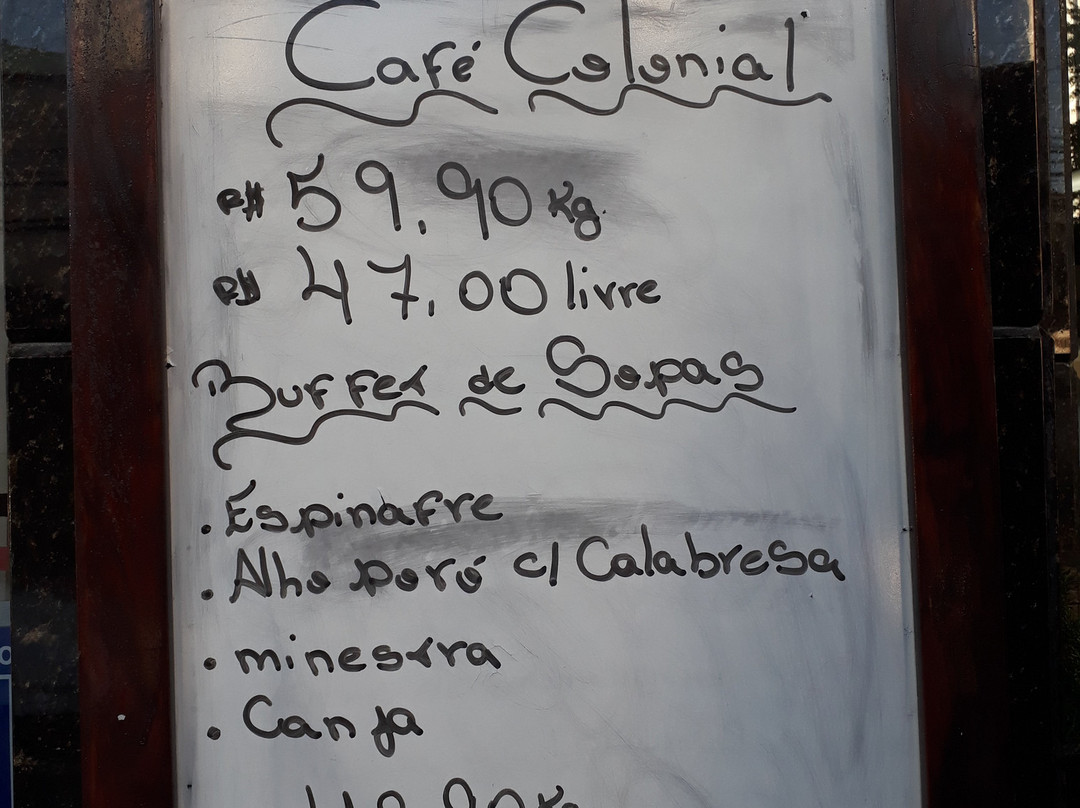 Café Colonial
R$ 59,90 Kg
R$ 47,00 livre
Buffet de Sopas
. Espinafre
. Alho poró c/ Calabresa
. minestra
. Canja